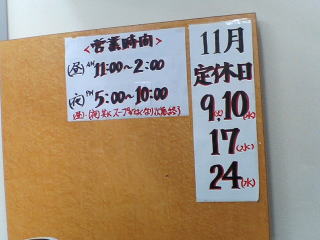 <営業時間>
(昼)AM 11:00~2:00
(夜)PM 5:00~10:00
(昼)・(夜)共にスープなくなり次第終了
11月
定休日
9(火),10(水)
17(水)
24(水)